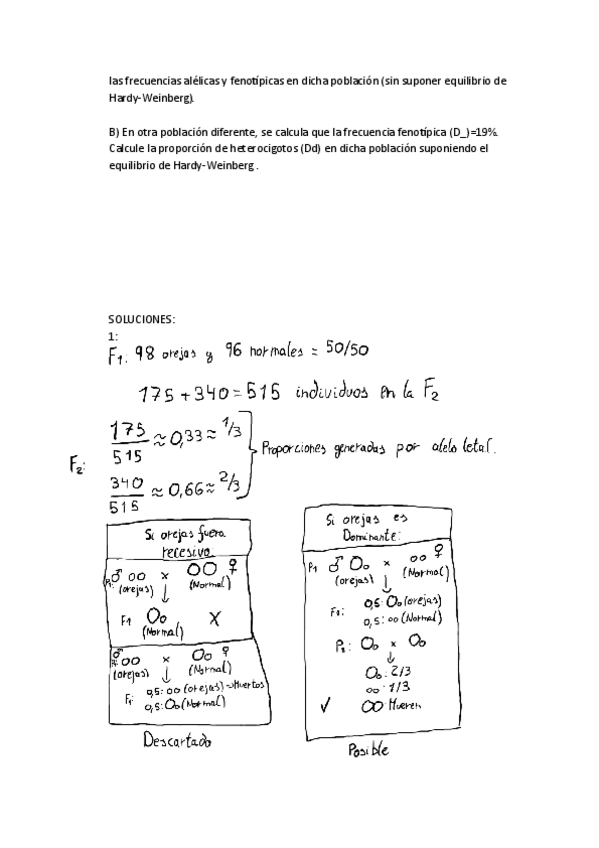 las frecuencias alélicas y fenotípicas en dicha población (sin suponer equilibrio de
Hardy-Weinberg).
B) En otra población diferente, se calcula que la frecuencia fenotípica (D_)=19%.
Calcule la proporción de heterocigotos (Dd) en dicha población suponiendo el
equilibrio de Hardy-Weinberg .
SOLUCIONES:
1:
F1: 98 orejas y 96 normales = 50/50
175 + 340 = 515 individuos en la F2
F2:
175/515 ≈ 0,33 ≈ 1/3
340/515 ≈ 0,66 ≈ 2/3
Proporciones generadas por alelo letal.
Si orejas fuera
recesivo
P1 ♂ oo x OO ♀
(orejas) ↓ (Normal)
F1 Oo X
(Normal)
♂ oo x Oo ♀
(orejas) ↓ (Normal)
F1: 0,5: oo (orejas) → Muertos
0,5: Oo (Normal)
Descartado
Si orejas es
Dominante:
P1 ♂ Oo x oo ♀
(orejas) ↓ (Normal)
F1: 0,5: Oo (orejas)
0,5: oo (Normal)
P2: Oo x Oo
↓
Oo: 2/3
oo: 1/3
✓ OO Mueren
Posible